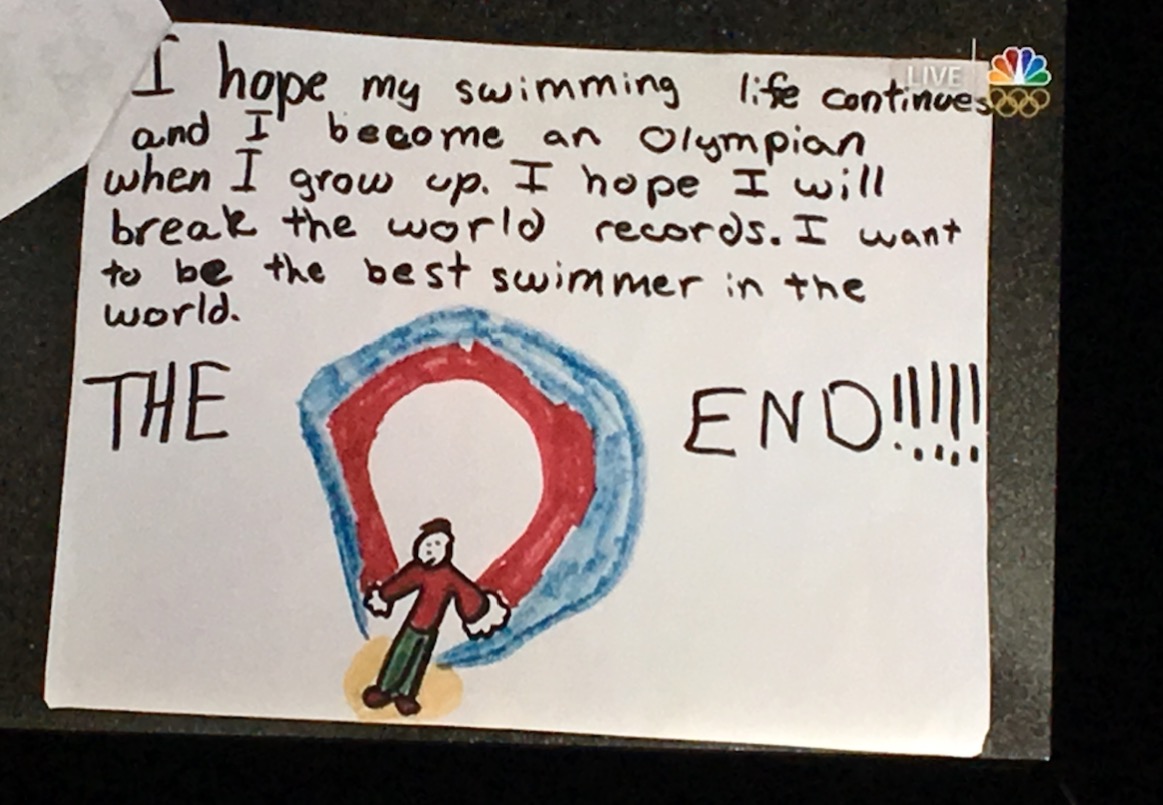 LIVE
I hope my swimming life continues
and I become an Olympian
when I grow up. I hope I will
break the world records. I want
to be the best swimmer in the
world.
THE END!!!!!